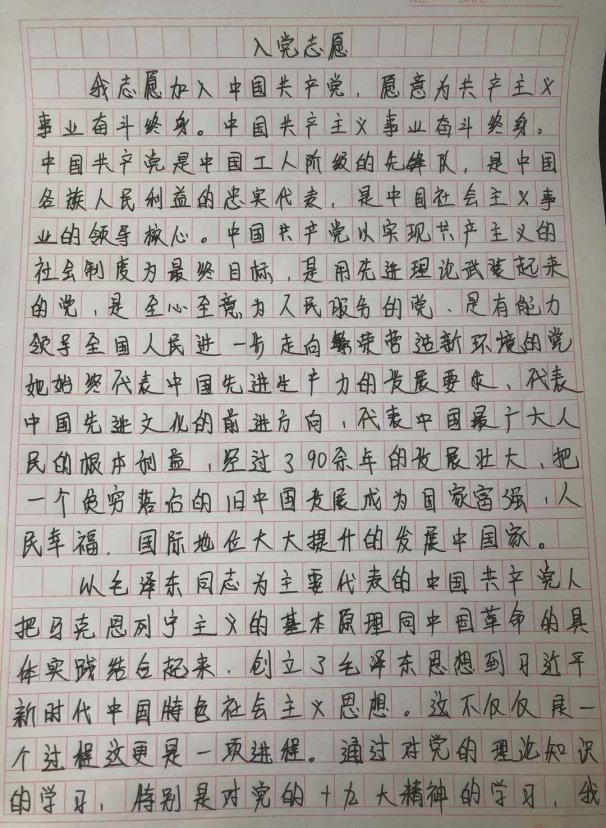 入党志愿
我志愿加入中国共产党,愿意为共产主义
事业奋斗终身。中国共产主义事业奋斗终身。
中国共产党是中国工人阶级的先锋队,是中国
各族人民利益的忠实代表,是中国社会主义事
业的领导核心。中国共产党以实现共产主义的
社会制度为最终目标,是用先进理论武装起来
的党,是至心至意为人民服务的党、是有能力
领导全国人民进一步走向繁荣营造新环境的党
她始终代表中国先进生产力的发展要求、代表
中国先进文化的前进方向,代表中国最广大人
民的根本利益,经过了90余年的发展壮大,把
一个贫穷落后的旧中国发展成为国家富强,人
民幸福,国际地位大大提升的发展中国家。
以毛泽东同志为主要代表的中国共产党人
把马克思列宁主义的基本原理同中国革命的具
体实践结合起来,创立了毛泽东思想到习近平
新时代中国特色社会主义思想。这不仅仅是一
个过程这更是一项进程。通过对党的理论知识
的学习,特别是对党的十九大精神的学习,我